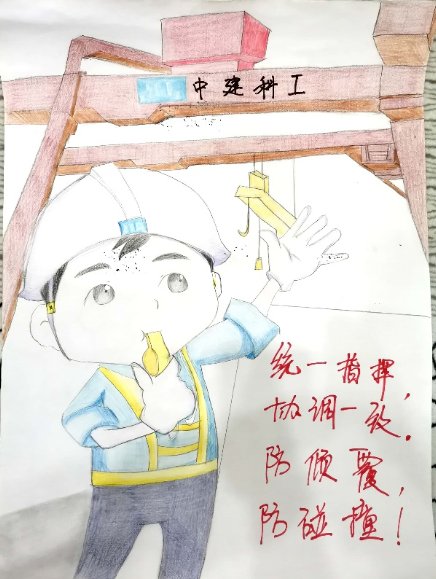 中建科工
统一指挥，
协调一致．
防倾覆，
防碰撞！